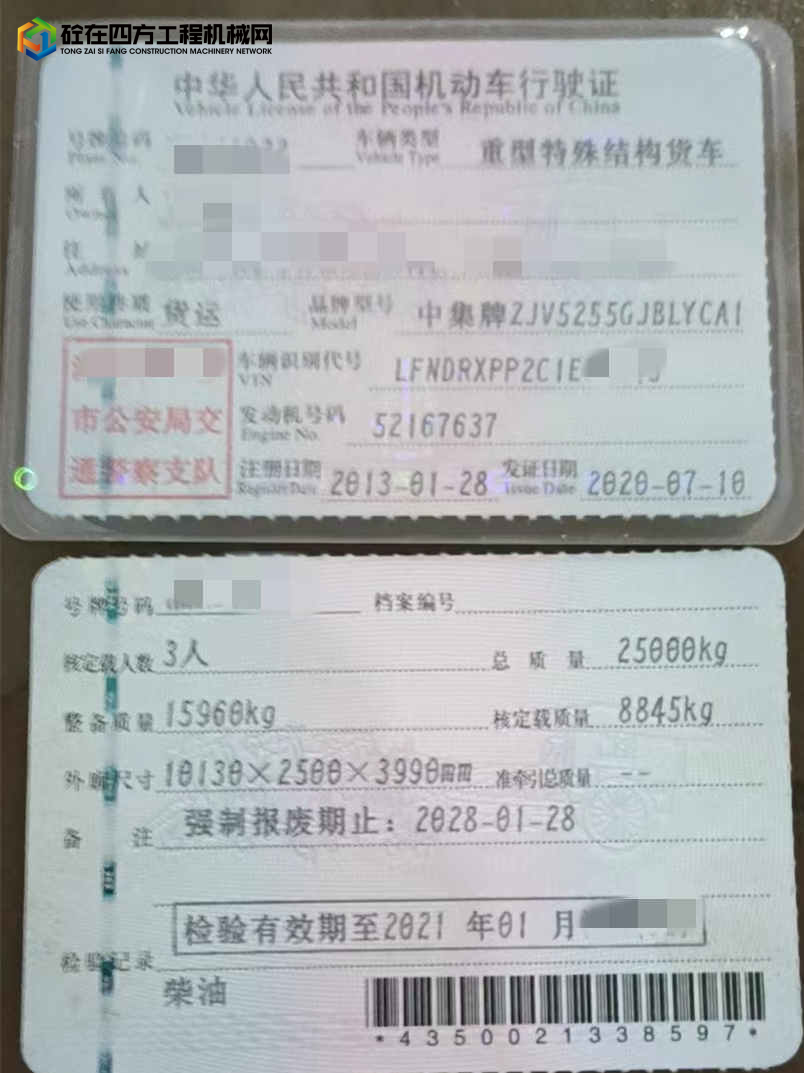 砼在四方工程机械网
TONG ZAI SI FANG CONSTRUCTION MACHINERY NETWORK
中华人民共和国机动车行驶证
Vehicle License of the People's Republic of China
号牌号码 车辆类型 重型特殊结构货车
Plate No. Vehicle Type
所有人
Owner
住址
Address
使用性质 货运 品牌型号 中集牌ZJV5255GJBLYCA1
Use Character Model
车辆识别代号 LFNDRXPP2C1E
VIN
市公安局交 发动机号码 52167637
Engine No.
通警察支队 注册日期 2013-01-28 发证日期 2020-07-10
Register Date Issue Date
号牌号码 档案编号
核定载人数 3人 总质量 25000kg
整备质量 15960kg 核定载质量 8845kg
外廓尺寸 10130×2500×3990mm 准牵引总质量 --
备注 强制报废期止：2028-01-28
检验有效期至2021年01月
检验记录
柴油
*4350021338597*